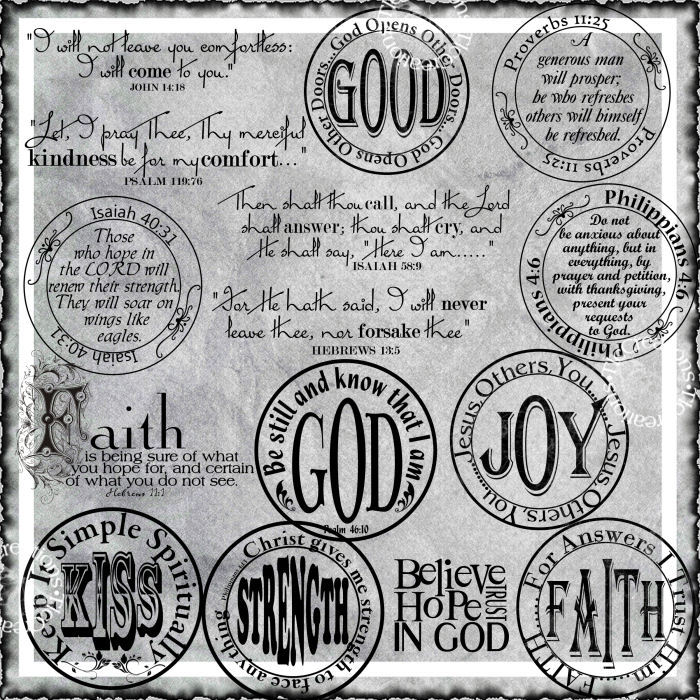 "I will not leave you comfortless:
I will come to you."
JOHN 14:18
God Opens Other Doors...God Opens Other Doors...
GOOD
Proverbs 11:25
A
generous man
will prosper;
he who refreshes
others will himself
be refreshed.
Proverbs 11:25
"Let, I pray Thee, Thy merciful
kindness be for my comfort..."
PSALM 119:76
Then shalt thou call, and the Lord
shall answer; thou shalt cry, and
He shall say, "Here I am....."
ISAIAH 58:9
Isaiah 40:31
Those
who hope in
the LORD will
renew their strength.
They will soar on
wings like
eagles.
Isaiah 40:31
Philippians 4:6
Do not
be anxious about
anything, but in
everything, by
prayer and petition,
with thanksgiving,
present your
requests
to God.
Philippians 4:6
"For He hath said, I will never
leave thee, nor forsake thee"
HEBREWS 13:5
Faith
is being sure of what
you hope for, and certain
of what you do not see.
Hebrews 11:1
Be still and know that I am
GOD
Psalm 46:10
Jesus,Others,You.....Jesus,Others,You.....
JOY
Keep It Simple Spiritually
KISS
Christ gives me strength to face anything
STRENGTH
Believe
HOPE
TRUST
IN GOD
For Answers I Trust Him....FAITH....
FAITH